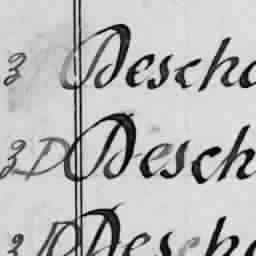 3 Descha
3 D Desch
3 D Descha